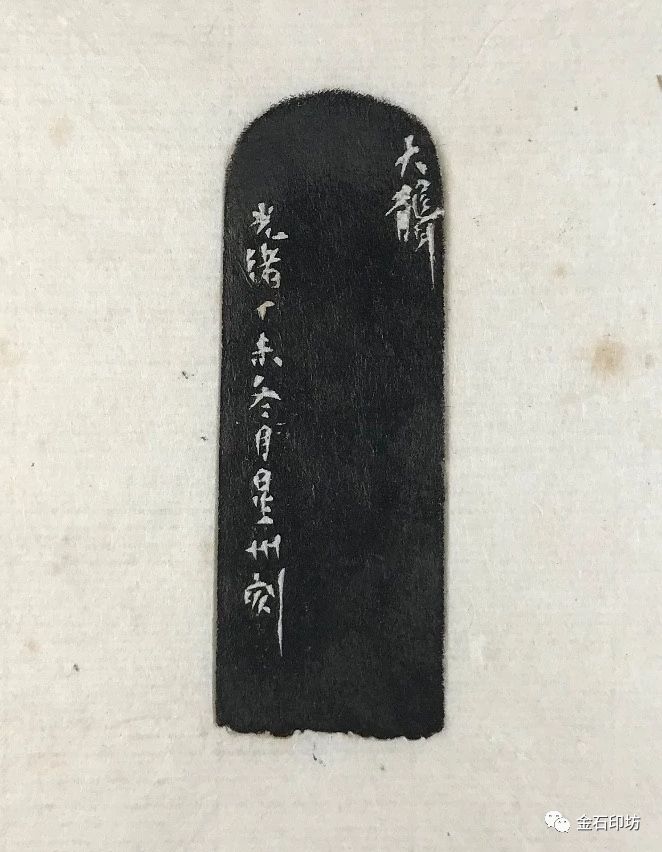 天䭫
光緒丁未冬月星州刻
金石印坊